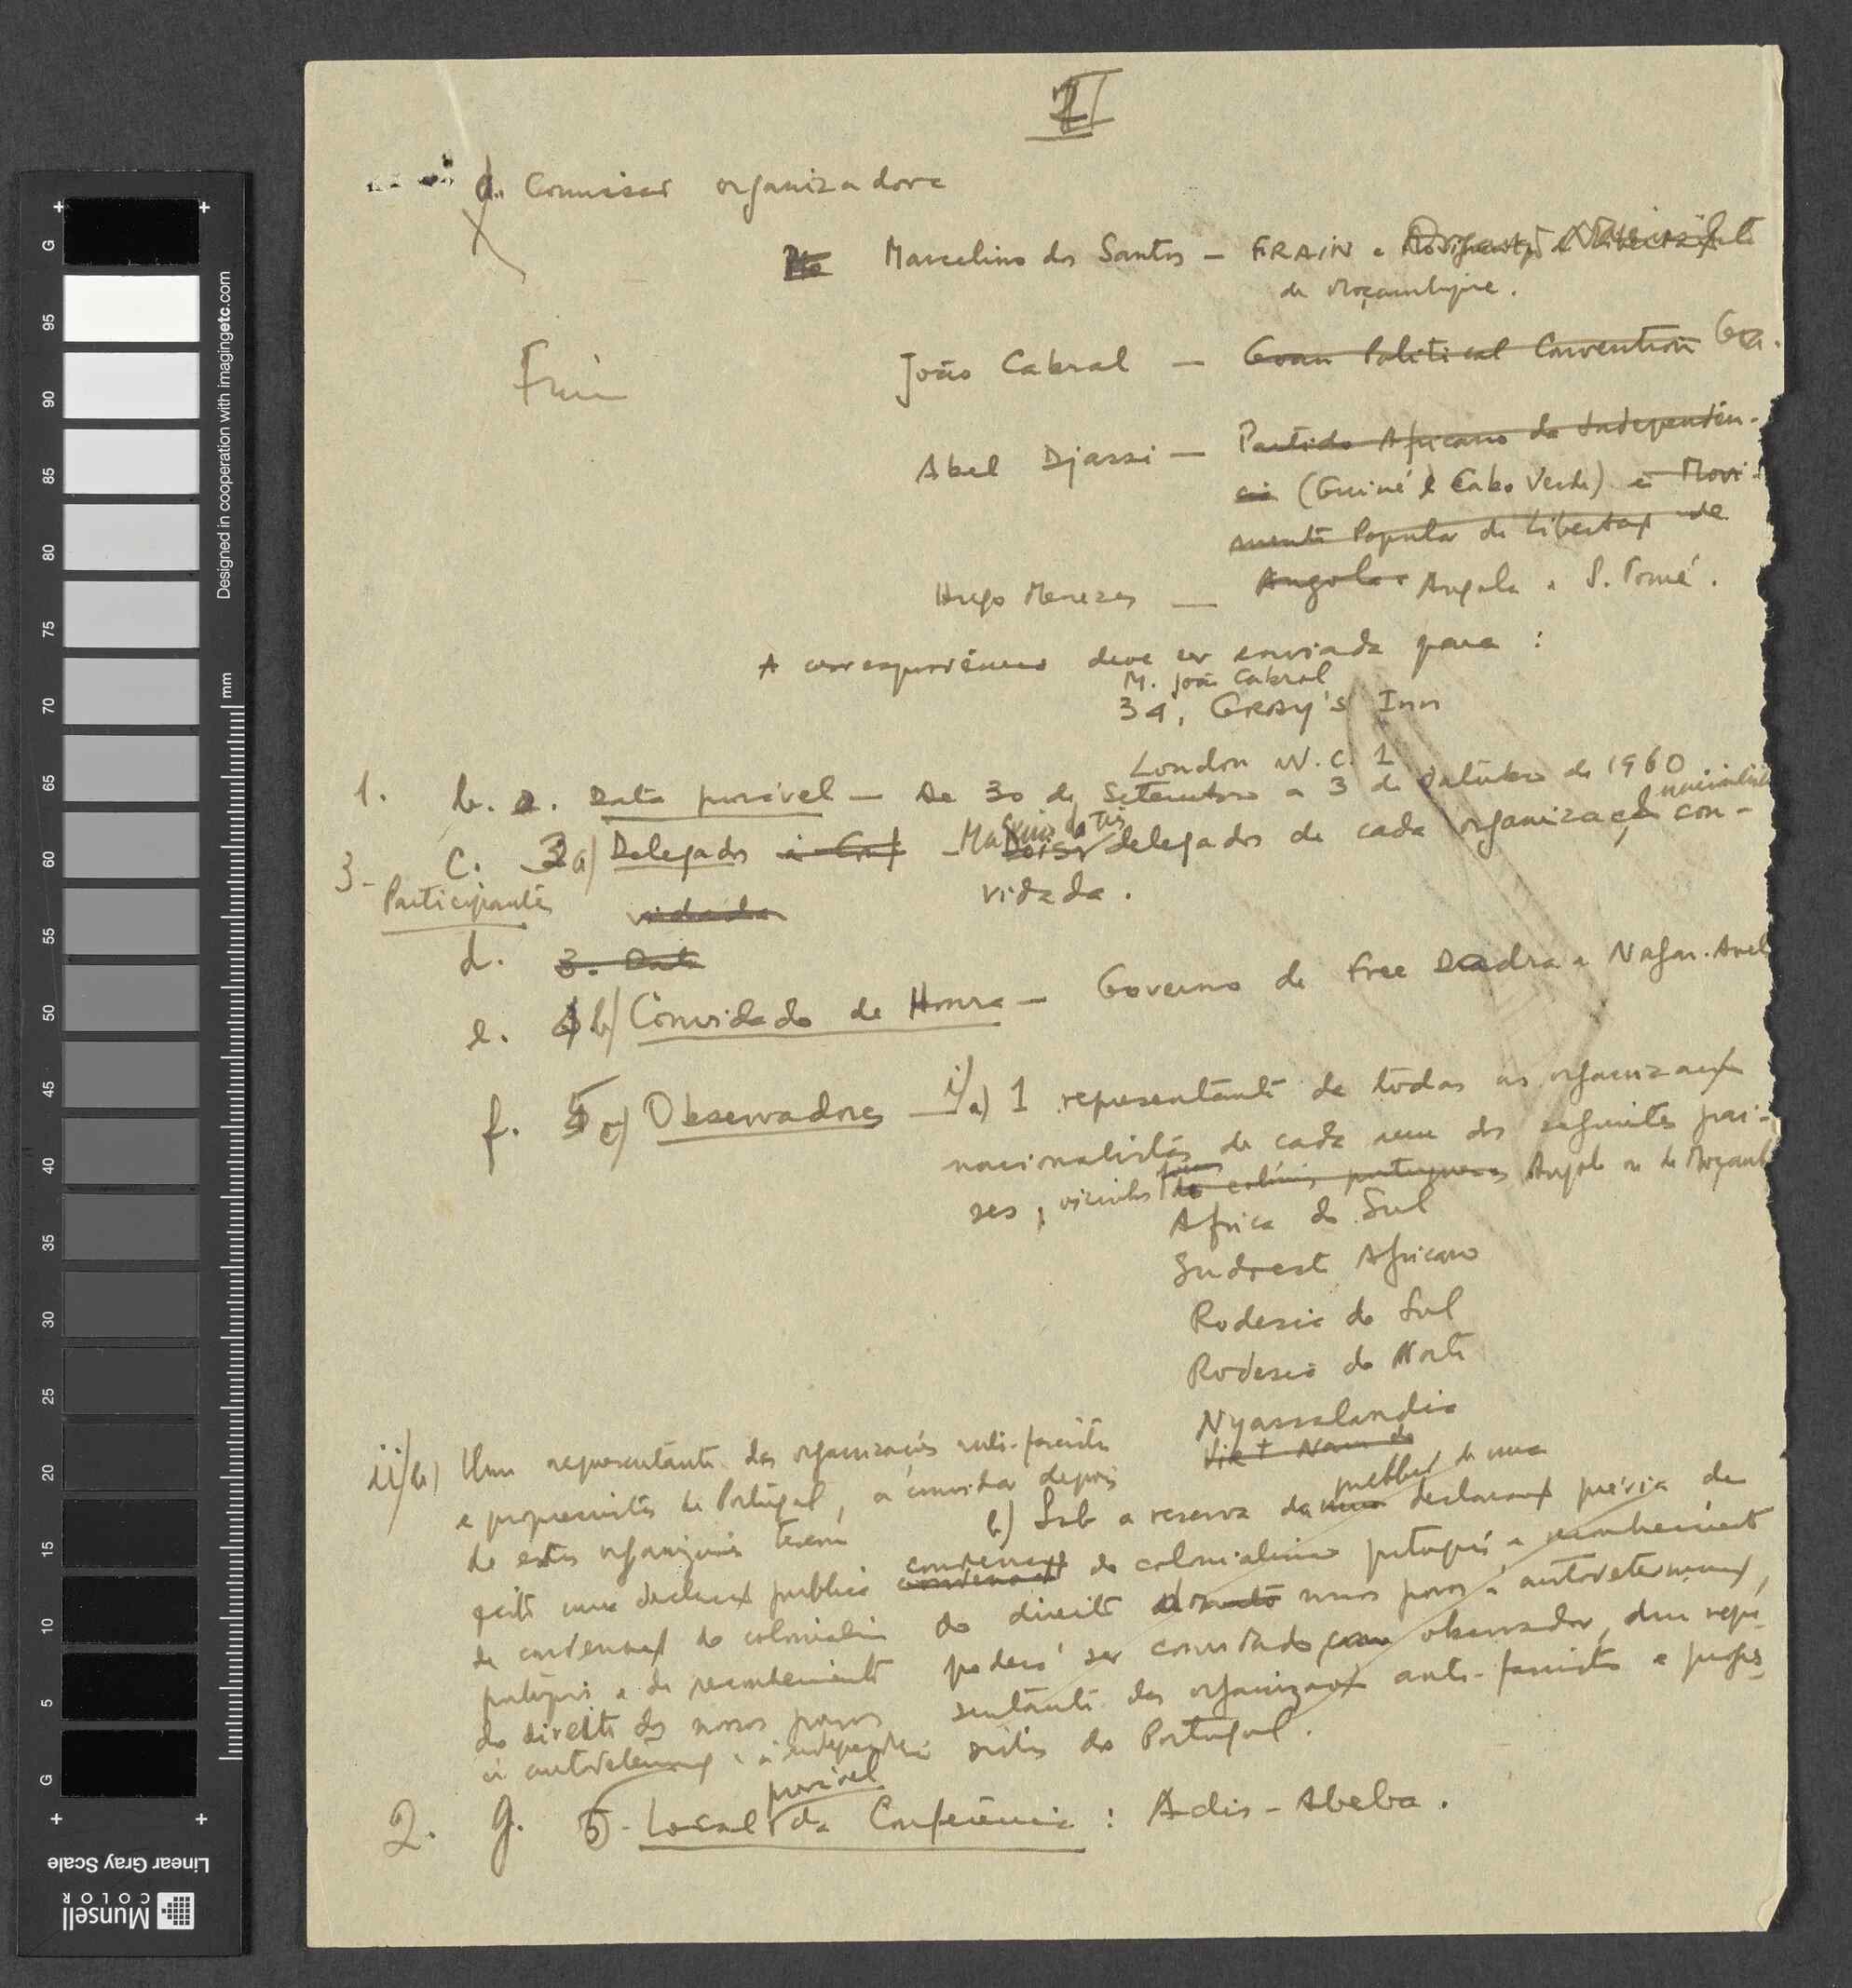 II
a. Comissão organizadora
Marcelino dos Santos — FRAIN e
de Moçambique.
Frain
João Cabral — Goan Political Convention Goa.
Abel Djassi — Partido Africano da Independên-
cia (Guiné e Cabo Verde) e Movi-
mento Popular de Libertação de
Hugo Menezes — Angola e Angola e S. Tomé.
A correspondência deve ser enviada para :
M. João Cabral
34, GRAY'S Inn
London W.C. 1
1. b. 2. Data possível — De 30 de Setembro a 3 de Outubro de 1960
3- C. 3 a) Delegados à Conf — Máximo de três delegados de cada organização nacionalista con-
Participantes vidada vidada.
d. 3. Data
e. 4 b) Convidado de Honra — Governo de Free Dadra e Nagar-Aveli
f. 5 c) Observadores — i/a) 1 representante de todas as organizações
nacionalistas de cada um dos seguintes paí-
ses, vizinhos das colónias portuguesas Angola ou de Moçamb
Africa do Sul
Sudoeste Africano
Rodesia do Sul
Rodesia do Norte
Nyassalandia
Viet Nam do
ii/b) Um representante das organizações anti-fascistas
e progressistas de Portugal, a convidar depois
de estas organizações terem
feito uma declaração publica
de condenação do colonialismo
português e de reconhecimento
do direito dos nossos povos
à autodeterminação e à independência
b) Sob a reserva de uma declaração prévia de
publica de uma
condenação do colonialismo português e reconhecimento
do direito nossos povos à autodeterminação,
poderá ser convidado, como observador, um repre-
sentante das organizações anti-fascistas e progres-
sistas de Portugal.
2. g. 5- Local possível da Conferência : Adis-Abeba.
Designed in cooperation with imagingetc.com
mm
G 95 90 85 80 75 70 65 60 55 50 45 40 35 30 25 20 15 10 5 G
Linear Gray Scale
Munsell
COLOR